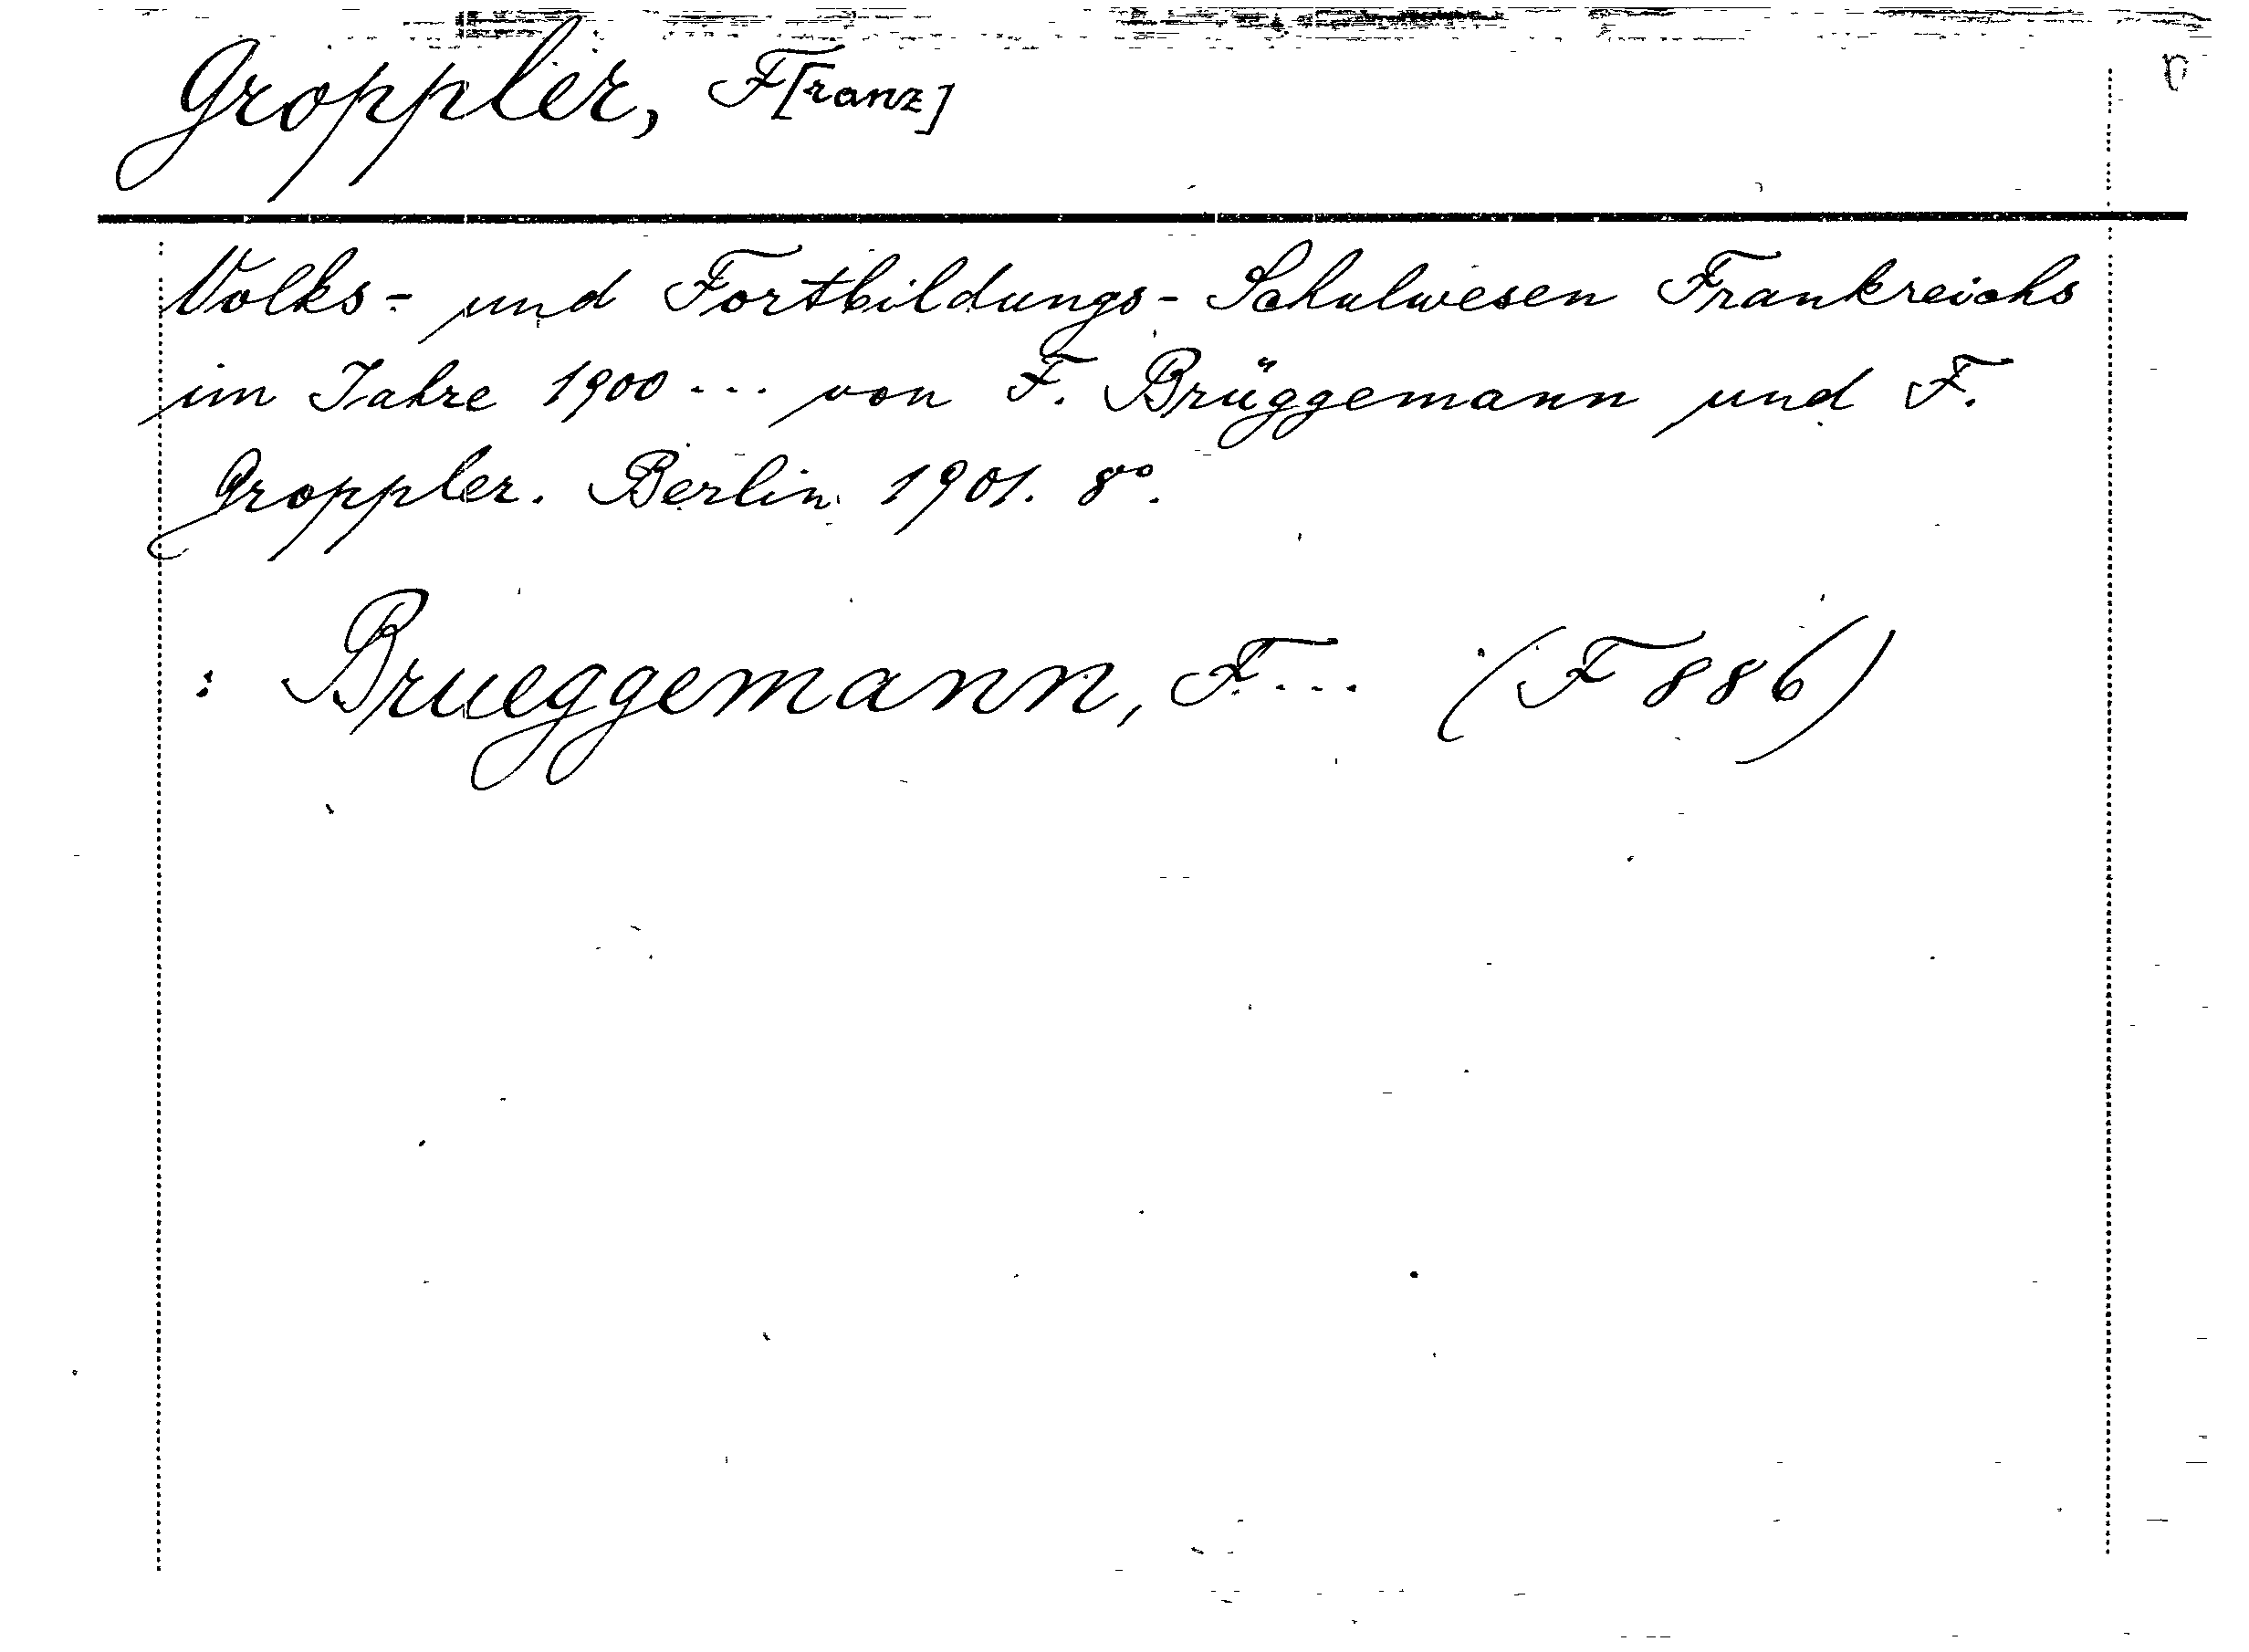 Groppler, F[ranz]
Volks- und Fortbildungs-Schulwesen Frankreichs
im Jahre 1900 ... von F. Brüggemann und F.
Groppler. Berlin 1901. 8°.
: Brueggemann, F... (F 886)